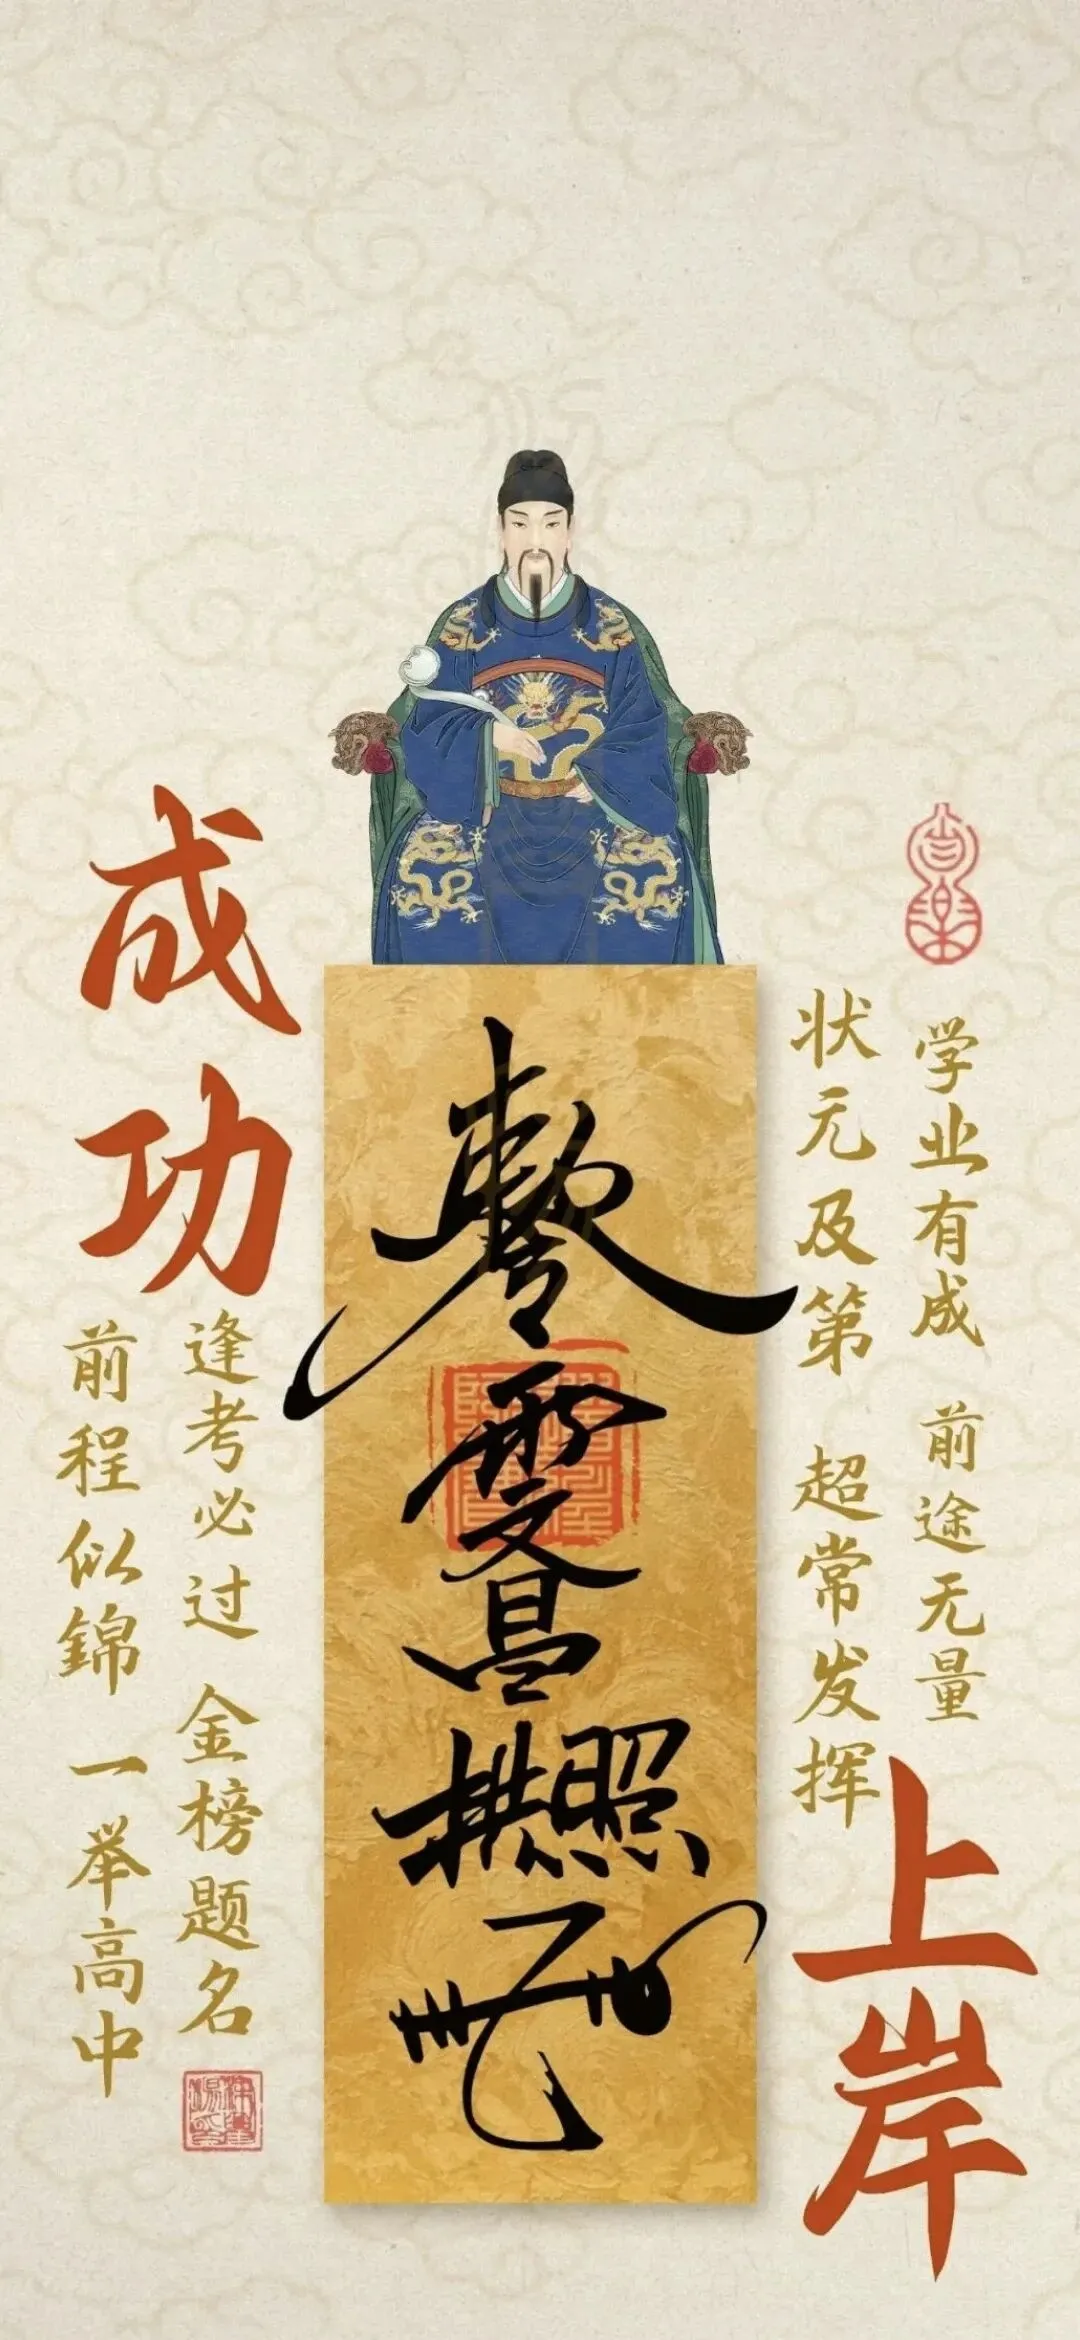 成功
上岸
学业有成 前途无量
状元及第 超常发挥
逢考必过 金榜题名
前程似錦 一举高中
文昌
拱照